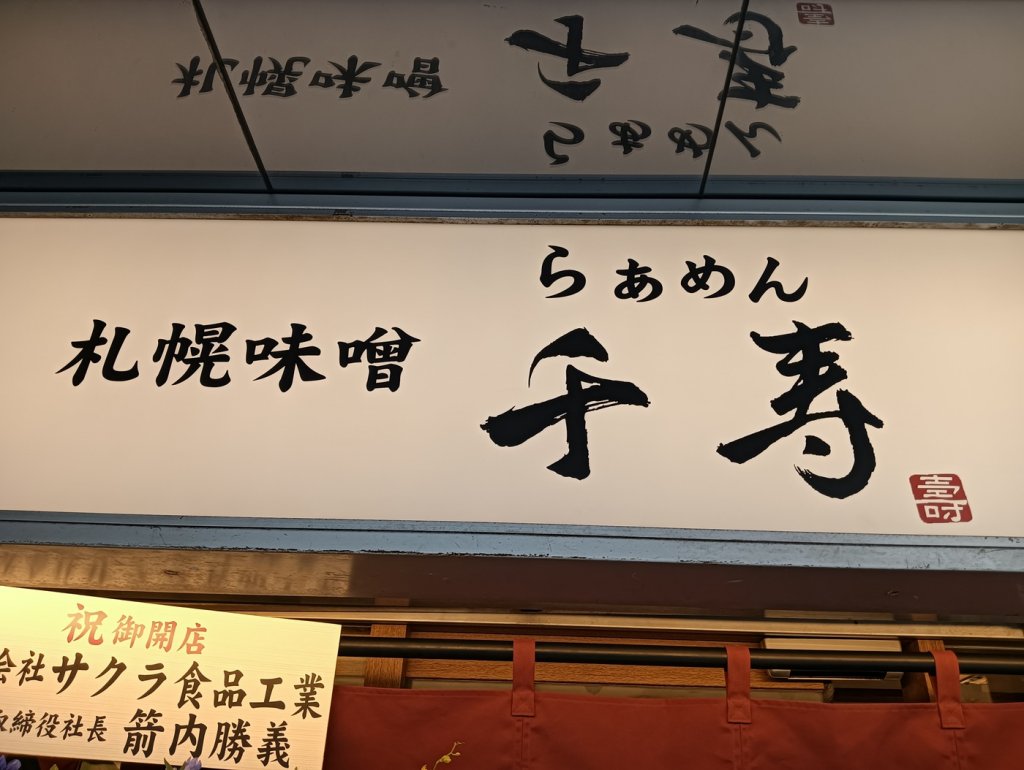 札幌味噌
らぁめん
千寿
壽
祝御開店
会社サクラ食品工業
取締役社長 箭内勝義